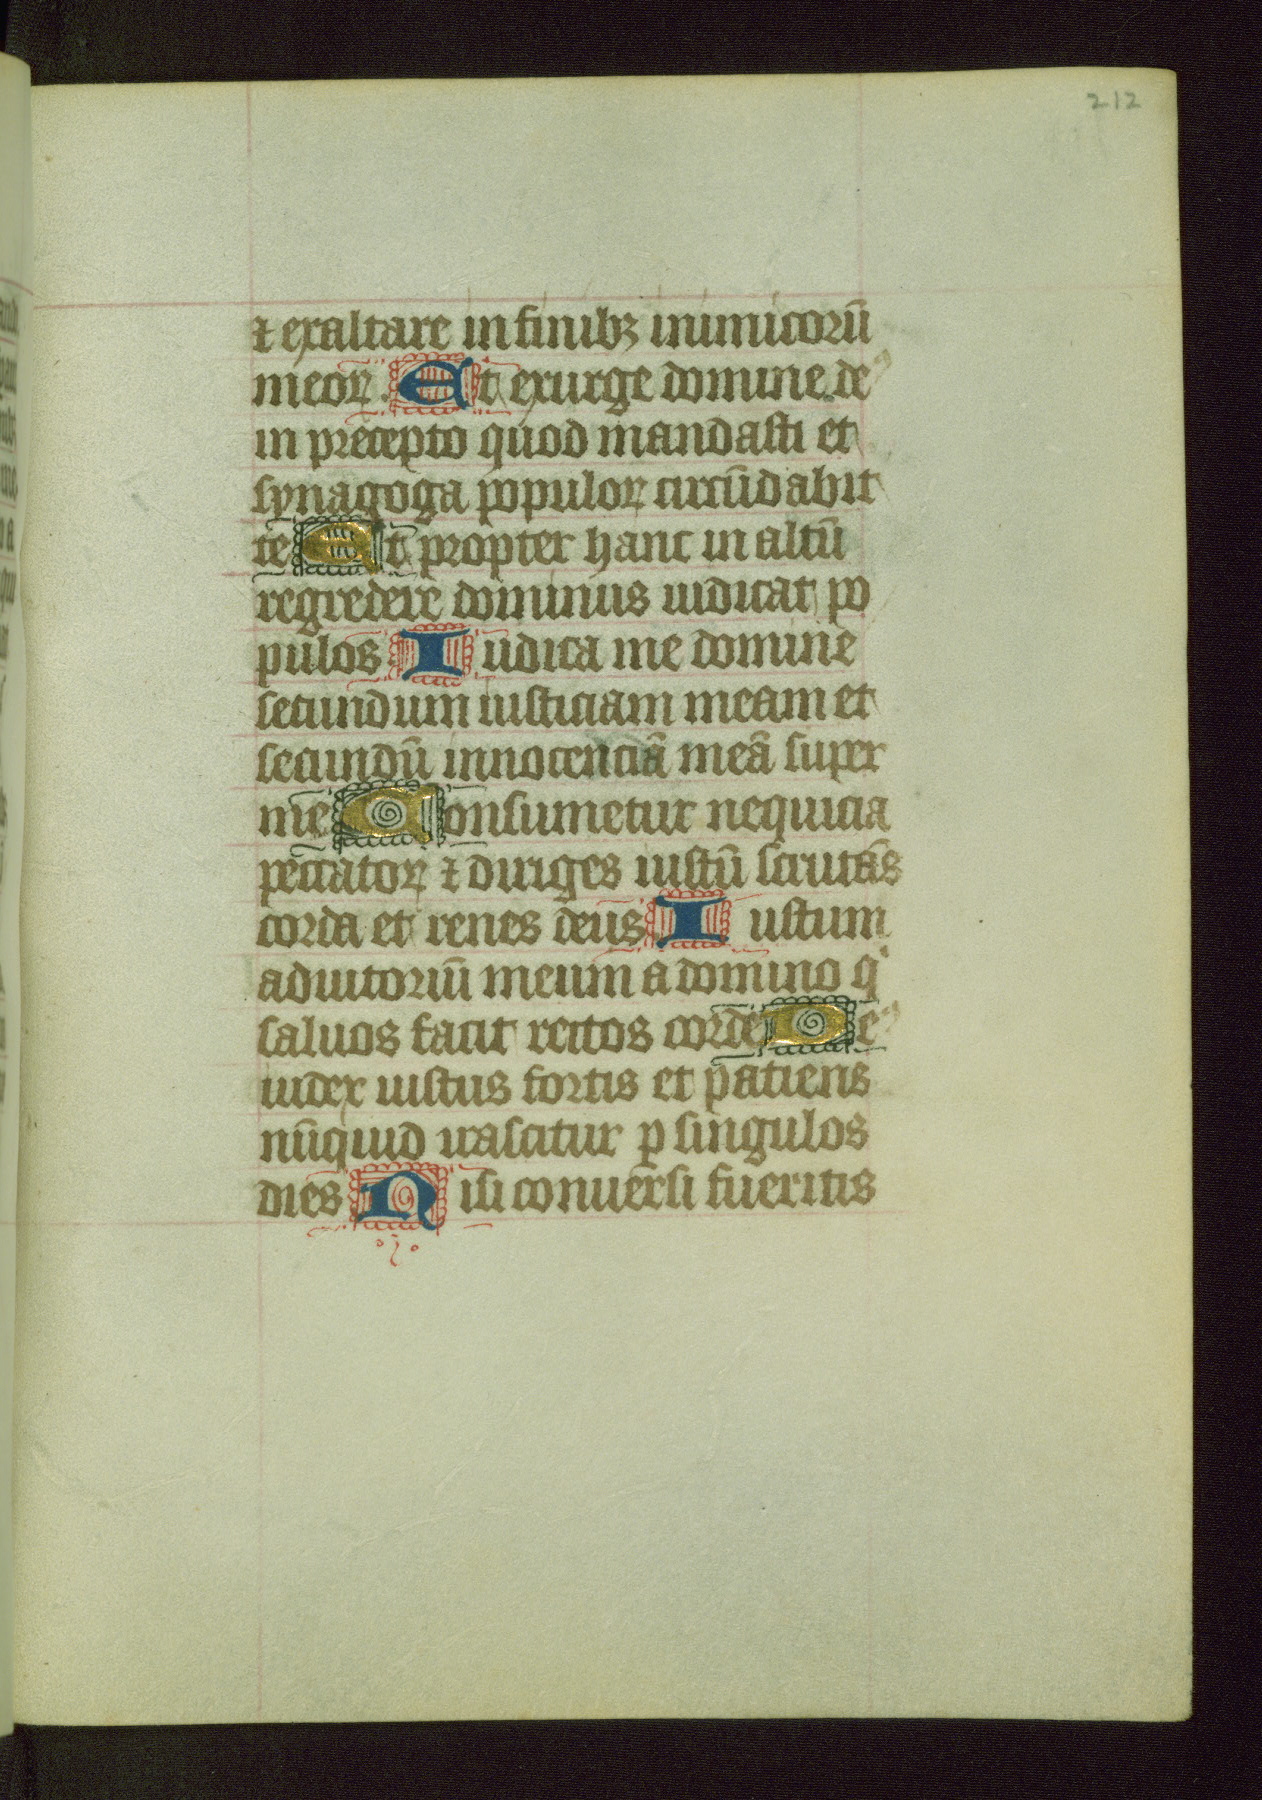 212
⁊ exaltare in finibꝫ inimicorū
meoꝝ. Et exurge domine de⁹
in precepto quod mandasti et
synagoga populoꝝ circūdabit
te Et propter hanc in altū
regredere dominus iudicat po
pulos Iudica me domine
secundum iusticiam meam et
secundū innocenciā meā super
me Consumetur nequicia
peccatoꝝ ⁊ diriges iustū scrutās
corda et renes deus Iustum
adiutoriū meum a domino qͥ
saluos facit rectos corde De⁹
iudex iustus fortis et patiens
nūquid irascitur ꝑ singulos
dies Nisi conuersi fueritis